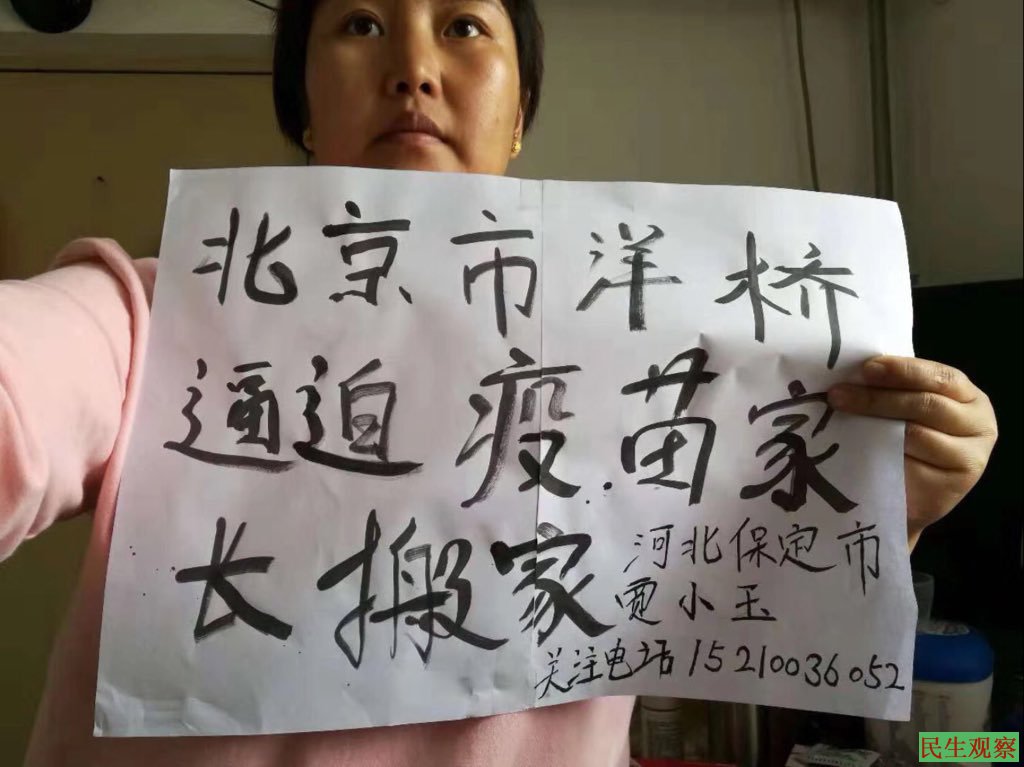 北京市洋桥
逼迫疫苗家
长搬家
河北保定市
贾小玉
关注电话15210036052
民生观察